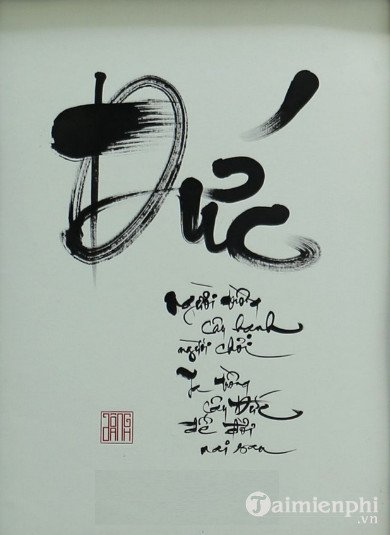 Đức
Người trồng
cây hạnh
người chơi
Ta trồng
cây Đức
để đời
mai sau
Taimienphi
.vn